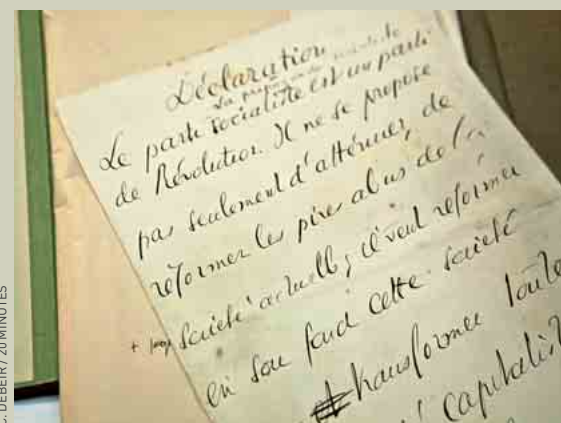 Déclaration
Le parti socialiste est un parti
de Révolution. Il ne se propose
pas seulement d'atténuer, de
réformer les pires abus de la
société actuelle ; il veut réformer
en son fond cette société
transformer toute
capitalist
C. DEBEIR / 20 MINUTES